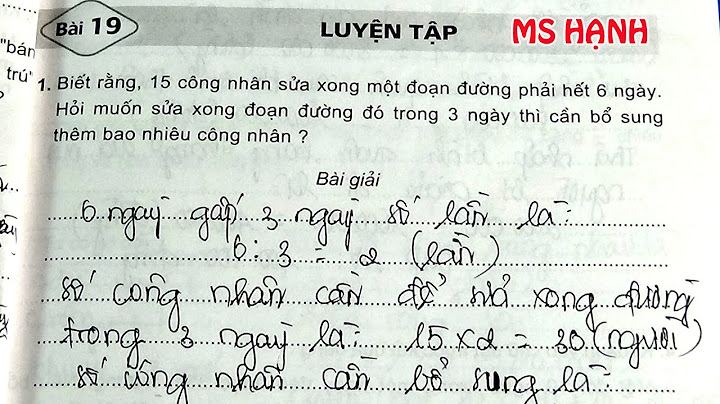 Bài 19
LUYỆN TẬP
MS HẠNH
"bán
trú"
1. Biết rằng, 15 công nhân sửa xong một đoạn đường phải hết 6 ngày.
Hỏi muốn sửa xong đoạn đường đó trong 3 ngày thì cần bổ sung
thêm bao nhiêu công nhân ?
Bài giải
6 ngày gấp 3 ngày số lần là :
6 : 3 = 2 (lần)
số công nhân cần để sửa xong đường
trong 3 ngày là : 15 x 2 = 30 (người)
số công nhân cần bổ sung là :